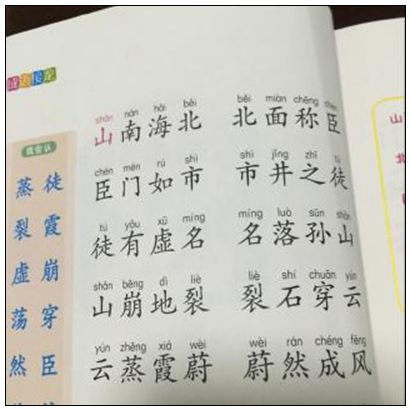 成语接龙
我会认
蒸 徒
裂 霞
虚 崩
荡 穿
然 臣
shān nán hǎi běi běi miàn chēng chén
山南海北 北面称臣
chén mén rú shì shì jǐng zhī tú
臣门如市 市井之徒
tú yǒu xū míng míng luò sūn shān
徒有虚名 名落孙山
shān bēng dì liè liè shí chuān yún
山崩地裂 裂石穿云
yún zhēng xiá wèi wèi rán chéng fēng
云蒸霞蔚 蔚然成风
山
北